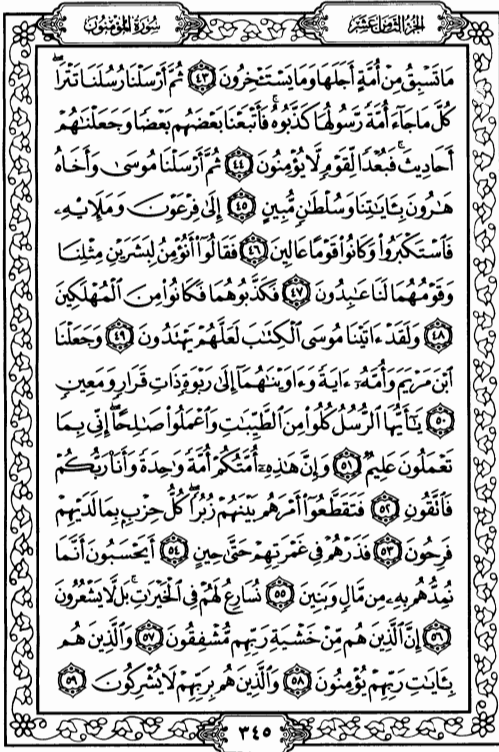 الجزء الثامن عشر
سورة المؤمنون
مَا تَسْبِقُ مِنْ أُمَّةٍ أَجَلَهَا وَمَا يَسْتَـْٔخِرُونَ ﴿٤٣﴾ ثُمَّ أَرْسَلْنَا رُسُلَنَا تَتْرَا ۖ
كُلَّ مَا جَآءَ أُمَّةً رَّسُولُهَا كَذَّبُوهُ ۚ فَأَتْبَعْنَا بَعْضَهُم بَعْضًا وَجَعَلْنَٰهُمْ
أَحَادِيثَ ۚ فَبُعْدًا لِّقَوْمٍ لَّا يُؤْمِنُونَ ﴿٤٤﴾ ثُمَّ أَرْسَلْنَا مُوسَىٰ وَأَخَاهُ
هَٰرُونَ بِـَٔايَٰتِنَا وَسُلْطَٰنٍ مُّبِينٍ ﴿٤٥﴾ إِلَىٰ فِرْعَوْنَ وَمَلَإِي۟هِۦ
فَٱسْتَكْبَرُوا۟ وَكَانُوا۟ قَوْمًا عَالِينَ ﴿٤٦﴾ فَقَالُوٓا۟ أَنُؤْمِنُ لِبَشَرَيْنِ مِثْلِنَا
وَقَوْمُهُمَا لَنَا عَٰبِدُونَ ﴿٤٧﴾ فَكَذَّبُوهُمَا فَكَانُوا۟ مِنَ ٱلْمُهْلَكِينَ
﴿٤٨﴾ وَلَقَدْ ءَاتَيْنَا مُوسَى ٱلْكِتَٰبَ لَعَلَّهُمْ يَهْتَدُونَ ﴿٤٩﴾ وَجَعَلْنَا
ٱبْنَ مَرْيَمَ وَأُمَّهُۥٓ ءَايَةً وَءَاوَيْنَٰهُمَآ إِلَىٰ رَبْوَةٍ ذَاتِ قَرَارٍ وَمَعِينٍ
﴿٥٠﴾ يَٰٓأَيُّهَا ٱلرُّسُلُ كُلُوا۟ مِنَ ٱلطَّيِّبَٰتِ وَٱعْمَلُوا۟ صَٰلِحًا ۖ إِنِّى بِمَا
تَعْمَلُونَ عَلِيمٌ ﴿٥١﴾ وَإِنَّ هَٰذِهِۦٓ أُمَّتُكُمْ أُمَّةً وَٰحِدَةً وَأَنَا۠ رَبُّكُمْ
فَٱتَّقُونِ ﴿٥٢﴾ فَتَقَطَّعُوٓا۟ أَمْرَهُم بَيْنَهُمْ زُبُرًا ۖ كُلُّ حِزْبٍۭ بِمَا لَدَيْهِمْ
فَرِحُونَ ﴿٥٣﴾ فَذَرْهُمْ فِى غَمْرَتِهِمْ حَتَّىٰ حِينٍ ﴿٥٤﴾ أَيَحْسَبُونَ أَنَّمَا
نُمِدُّهُم بِهِۦ مِن مَّالٍ وَبَنِينَ ﴿٥٥﴾ نُسَارِعُ لَهُمْ فِى ٱلْخَيْرَٰتِ ۚ بَل لَّا يَشْعُرُونَ
﴿٥٦﴾ إِنَّ ٱلَّذِينَ هُم مِّنْ خَشْيَةِ رَبِّهِم مُّشْفِقُونَ ﴿٥٧﴾ وَٱلَّذِينَ هُم
بِـَٔايَٰتِ رَبِّهِمْ يُؤْمِنُونَ ﴿٥٨﴾ وَٱلَّذِينَ هُم بِرَبِّهِمْ لَا يُشْرِكُونَ ﴿٥٩﴾
٣٤٥